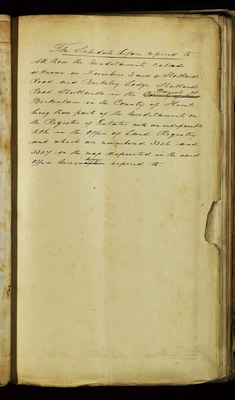 The Schedule before referred to
All those the hereditaments called
or known as Numbers 3 and 4 Shortlands
Road and Berkeley Lodge Shortlands
Road Shortlands in the Parish of
Beckenham in the County of Kent
being those parts of the hereditaments on
the Register of Estates with an indefeasible
title in the Office of Land Registry
and which are numbered 3326 and
3327 on the map deposited in the said
Office hereinbefore referred to